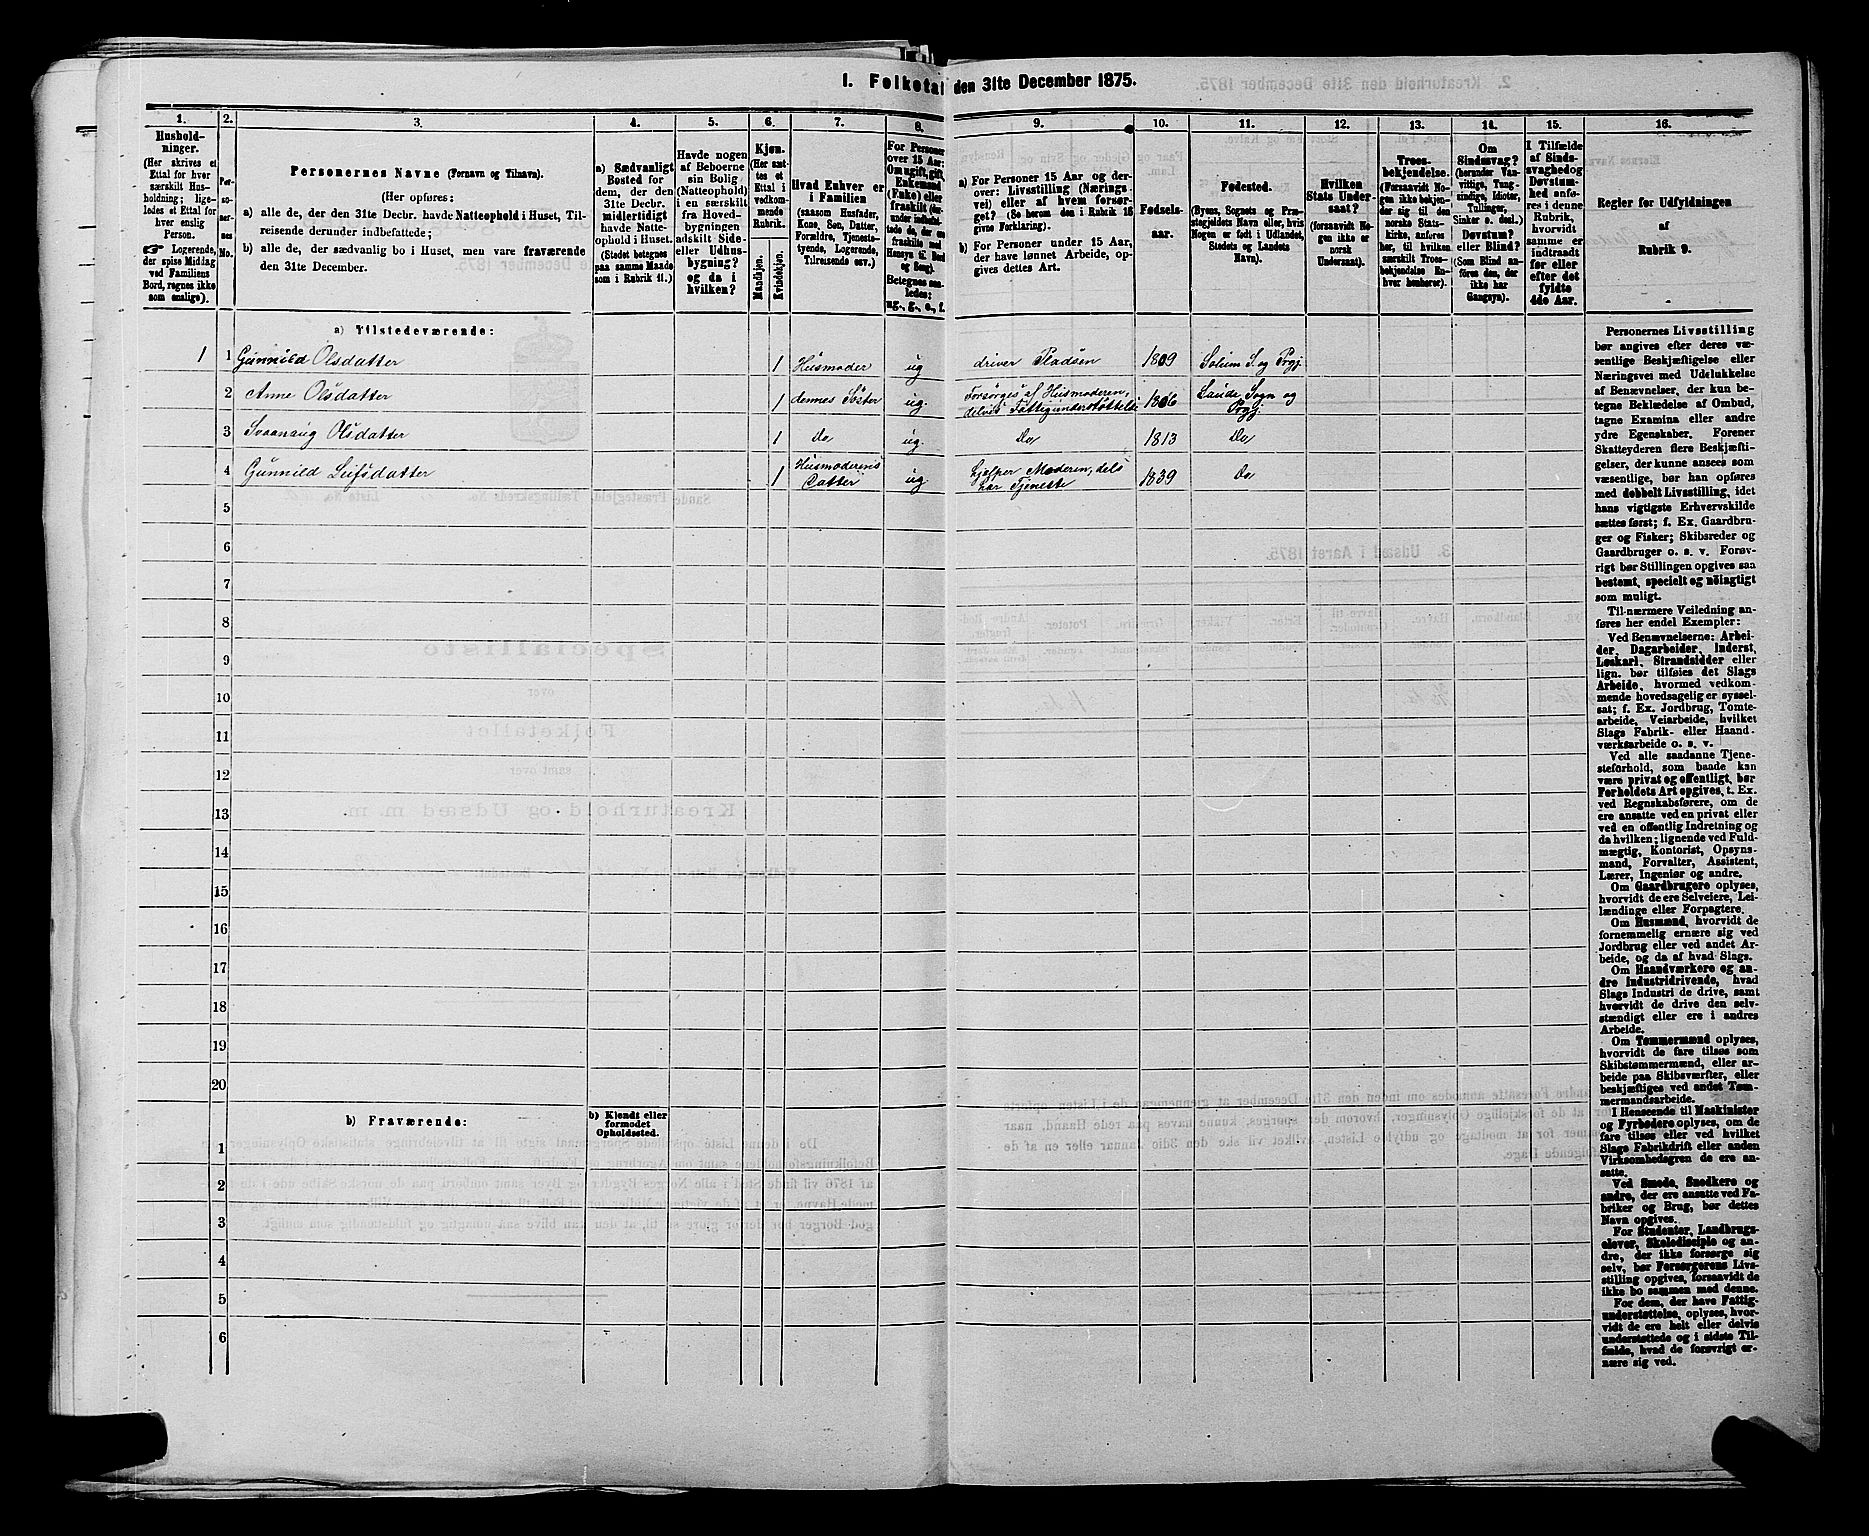 1. Folketal den 31te December 1875.
1. 2. 3. 4. 5. 6. 7. 8. 9. 10. 11. 12. 13. 14. 15. 16.
Hushold-
ninger.
(Her skrives et
Ettal for hver
særskilt Hus-
holdning; lige-
ledes et Ettal for
hver enslig
Person.
☞ Logerende,
der spise Middag
ved Familiens
Bord, regnes ikke
som enslige).
Per-
so-
ner-
nes
No.
Personernes Navne (Fornavn og Tilnavn).
(Her opføres:
a) alle de, der den 31te Decbr. havde Natteophold i Huset, Til-
reisende derunder indbefattede;
b) alle de, der sædvanlig bo i Huset, men vare fraværende
den 31te December.
a) Sædvanligt
Bosted for
dem, der den
31te Decbr.
midlertidigt
havde Natte-
ophold i Huset.
(Stedet betegnes
paa samme Maade
som i Rubrik 11.)
Havde nogen
af Beboerne
sin Bolig
(Natteophold)
i en særskilt
fra Hoved-
bygningen
adskilt Side-
eller Udhus-
bygning?
og da i
hvilken?
Kjøn.
(Her sæt-
tes et
Ettal i
vedkom-
mende
Rubrik.
Mandkjøn.
Kvindekjøn.
Hvad Enhver er
i Familien
(saasom Husfader,
Kone, Søn, Datter,
Forældre, Tjeneste-
tyende, Logerende,
Tilreisende osv.)
For Personer
over 15 Aar:
Om ugift, gift,
Enkemand
(Enke) eller
fraskilt
Betegnes saa-
ledes:
ug., g., e., f.
a) For Personer 15 Aar og der-
over: Livsstilling (Nærings-
vei) eller af hvem forsør-
get? (Se herom den i Rubrik 16
givne Forklaring).
b) For Personer under 15 Aar,
der have lønnet Arbeide, op-
gives dettes Art.
Fødsels-
aar.
Fødested.
(Byens, Sognets og Præ-
stegjeldets Navn eller, hvis
Nogen er født i Udlandet,
Stedets og Landets
Navn).
Hvilken
Stats Under-
saat?
(forsaavidt No-
gen ikke er
norsk
Undersaat).
Troes-
bekjendelse.
(Forsaavidt No-
gen ikke bekjen-
der sig til den
norske Stats-
kirke, anføres
her, til hvilken
særskilt Troes-
bekjendelse En-
hver henhører).
Om
Sindssvag?
(herunder Van-
vittige, Tung-
sindige, Idioter,
Tullinger,
Sinker o. desl.)
Døvstum?
eller Blind?
(Som Blind an-
føres den, der
ikke har
Gangsyn).
I Tilfælde
af Sinds-
svaghed og
Døvstum-
hed anfø-
res i denne
Rubrik,
hvorvidt
samme er
indtraadt
før eller
efter det
fyldte
4de Aar.
Regler for Udfyldningen
af
Rubrik 9.
a) Tilstedeværende:
1 1 Gunnild Olsdatter 1 Husmoder ug driver Pladsen 1809 Solum S. og Prgj.
2 Anne Olsdatter 1 dennes Søster ug. Forsørges af Husmoderen, delvis Fattigunderstøttelse 1806 Saude Sogn og Prgj.
3 Svaanaug Olsdatter 1 Do ug. Do 1813 Do
4 Gunnild Leifsdatter 1 Husmoderens Datter ug. hjelper Moderen, dels har Tjeneste 1839 Do
5
6
7
8
9
10
11
12
13
14
15
16
17
18
19
20
b) Fraværende:
b) Kjendt eller
formodet
Opholdssted.
1
2
3
4
5
6
Personernes Livsstilling
bør angives efter deres væ-
sentlige Beskjæftigelse eller
Næringsvei med Udelukkelse
af Benævnelser, der kun be-
tegne Beklædelse af Ombud,
tagne Examina eller andre
ydre Egenskaber. Forener
Skatteyderen flere Beskjæfti-
gelser, der kunne ansees som
væsentlige, bør han opføres
med dobbelt Livsstilling, idet
hans vigtigste Erhvervskilde
sættes først; f. Ex. Gaardbru-
ger og Fisker; Skibsreder og
Gaardbruger o. s. v. Forøv-
rigt bør Stillingen opgives saa
bestemt, specielt og nøiagtigt
som muligt.
Til nærmere Veiledning an-
føres her endel Exempler:
Ved Benævnelserne: Arbei-
der, Dagarbeider, Inderst,
Løskarl, Strandsidder eller
lign. bør tilføies det Slags
Arbeide, hvormed vedkom-
mende hovedsagelig er syssel-
sat; f. Ex. Jordbrug, Tomte-
arbeide, Veiarbeide, hvilket
Slags Fabrik- eller Haand-
værksarbeide o. s. v.
Ved alle saadanne Tjene-
steforhold, som baade kan
være privat og offentligt, bør
Forholdets Art opgives, t. Ex.
ved Regnskabsførere, om de
ere ansatte ved en privat eller
ved en offentlig Indretning og
da hvilken; lignende ved Fuld-
mægtig, Kontorist, Opsyns-
mand, Forvalter, Assistent,
Lærer, Ingeniør og andre.
Om Gaardbrugere oplyses,
hvorvidt de ere Selveiere, Lei-
lændinge eller Forpagtere.
Om Husmænd, hvorvidt de
fornemmelig ernære sig ved
Jordbrug eller ved andet Ar-
beide, og da af hvad Slags.
Om Haandværkere og an-
dre Industridrivende, hvad
Slags Industri de drive, samt
hvorvidt de drive den selv-
stændigt eller ere i andres
Arbeide.
Om Tømmermænd oplyses,
hvorvidt de fare tilsøs som
Skibstømmermænd, eller ar-
beide paa Skibsværfter, eller
beskjæftiges ved andet Tøm-
mermandsarbeide.
I Henseende til Maskinister
og Fyrbødere oplyses, om de
fare tilsøs eller ved hvilket
Slags Fabrikdrift eller anden
Virksomhedsgren de ere an-
satte.
Ved Smede, Snedkere og
andre, der ere ansatte ved Fa-
briker og Brug, bør dettes
Navn opgives.
For Studenter, Landbrugs-
elever, Skoledisciple og an-
dre, der ikke forsørge sig
selv, bør Forsørgerens Livs-
stilling opgives, forsaavidt de
ikke bo sammen med denne.
For dem, der have Fattig-
understøttelse, oplyses, hvor-
vidt de ere helt eller delvis
understøttede og i sidste Til-
fælde, hvad de forøvrigt er-
nære sig ved.